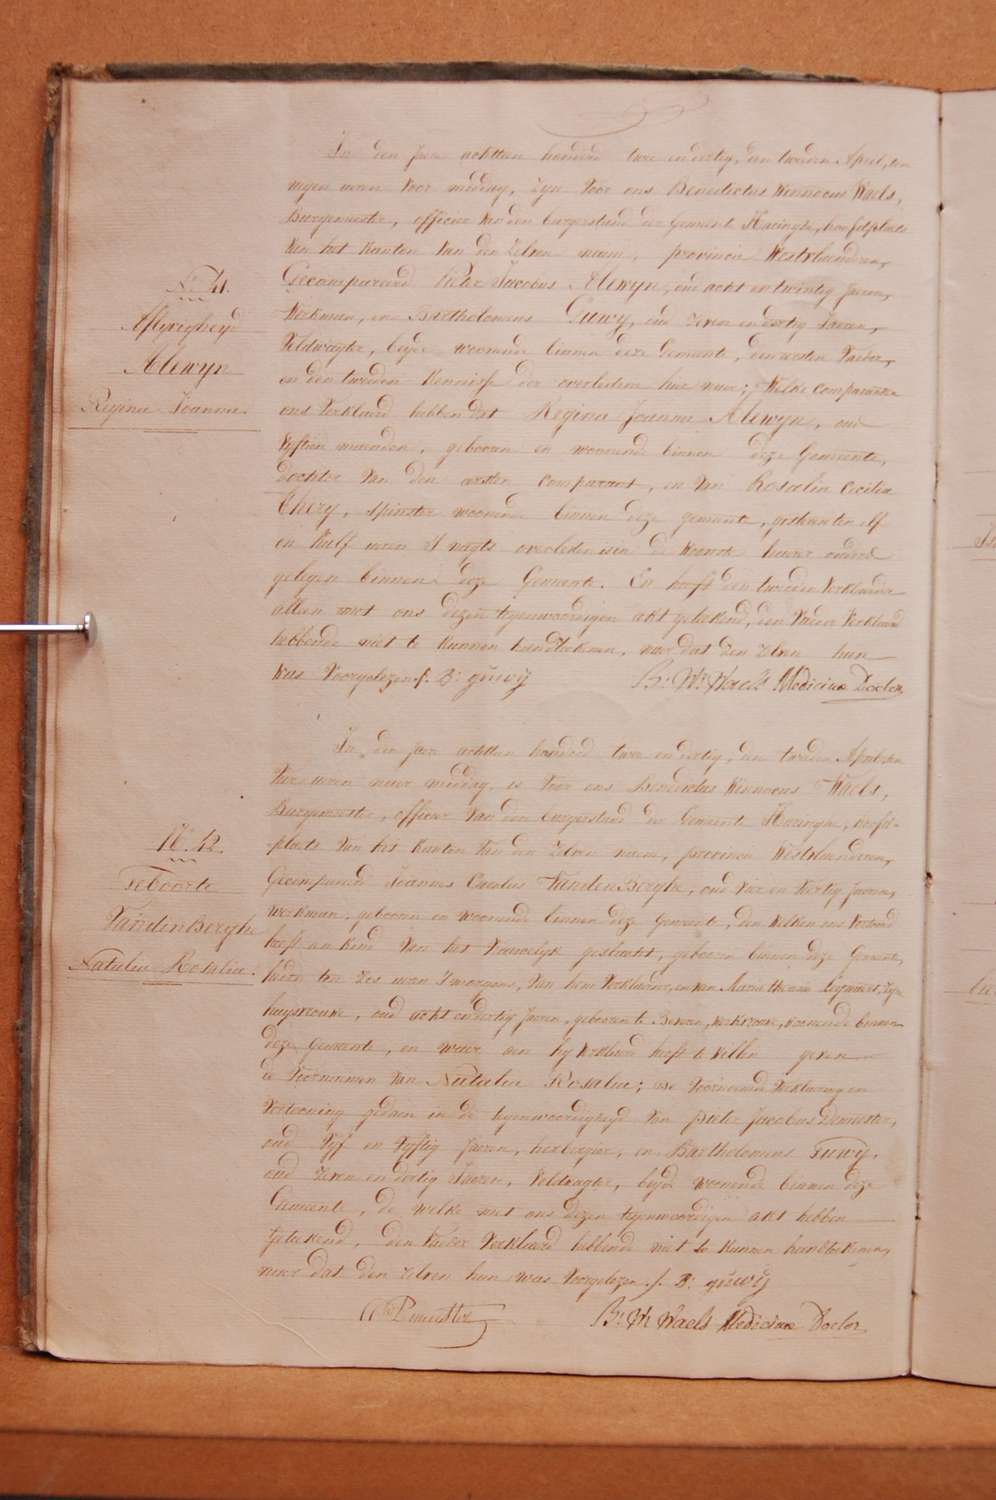 N: 41.
Aflyvigheyd
Alewyn
Regina Joanna.
In den Jare achttien honderd twee en dertig, den tweeden April, ten
negen uren voor middag, zyn voor ons Benedictus Winnocus Waels,
Burgemeester, officier van den burgerstand der Gemeente Haringhe, hoofdplaets
van het kanton van den zelven naem, provincie Westvlaenderen,
Gecompareerd Pieter Jacobus Alewyn, oud acht en twintig Jaren,
Werkman, en Bartholomeus Guwy, oud zeven en dertig Jaren,
Veldwagter, beyde woonende binnen deze Gemeente, den eersten Vader,
en den tweeden Kennisse der overledene hier naer; Welke comparanten
ons verklaerd hebben dat Regina Joanna Alewyn, oud
vyftien maenden, geboren en woonende binnen deze Gemeente,
dochter van den eersten comparant, en van Rosalia Cecilia
Thery, spinster woonende binnen deze gemeente, gisteren ten elf
en half uren S'nagts overleden is in de woonste haerer ouders
gelegen binnen deze Gemeente. En heeft den tweeden Verklaerder
alleen met ons dezen tegenwoordigen akt geteekend, den Vader verklaerd
hebbende niet te kunnen handteekenen, naer dat den zelven hun
was Voorgelezen ./. B: guwÿ B: W: Waels Medicinae Doctor
N: 42.
Geboorte
VandenBerghe
Natalie Rosalie.
In den Jare achttien honderd twee en dertig, den tweeden April, ten
twee uren naer middag, is voor ons Benedictus Winnocus Waels,
Burgemeester, officier van den burgerstand der Gemeente Haringhe, hoofd-
plaets van het kanton van den zelven naem, provincie Westvlaenderen,
Gecompareerd Joannes Carolus VandenBerghe, oud vier en veertig Jaren,
werkman, geboren en woonende binnen deze Gemeente, den welken ons vertoond
heeft een kind van het vrouwelyk geslacht, geboren binnen deze Gemeente,
heden ten zes uren s'morgens, van hem verklaerder, en van Marie Theresia zyne
huysvrouwe, oud acht en dertig Jaren, geboren te Beveren, werkvrouw, woonende binnen
deze Gemeente, en waer aen hy verklaerd heeft te willen geven
de voornamen van Natalie Rosalie; De voornoemde verklaering en
vertooning gedaen in de tegenwoordigheyd van pieter Jacobus Demeester,
oud vyf en vyftig Jaren, herbergier, en Bartholomeus Guwy,
oud zeven en dertig Jaren, Veldwagter, beyde woonende binnen deze
Gemeente, de welke met ons dezen tegenwoordigen akt hebben
geteekend, den Vader verklaerd hebbende niet te kunnen handteekenen,
naer dat den zelven hun was Voorgelezen ./. B: guwÿ
B: W: Waels Medicinae Doctor